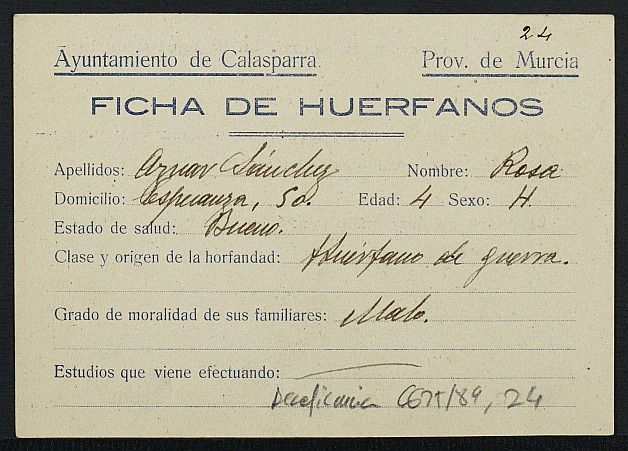 24
Ayuntamiento de Calasparra Prov. de Murcia
FICHA DE HUERFANOS
Apellidos: Aznar Sánchez Nombre: Rosa
Domicilio: Esperanza, 50. Edad: 4 Sexo: H.
Estado de salud: Bueno.
Clase y origen de la horfandad: Huerfano de guerra.
Grado de moralidad de sus familiares: Malo.
Estudios que viene efectuando:
24